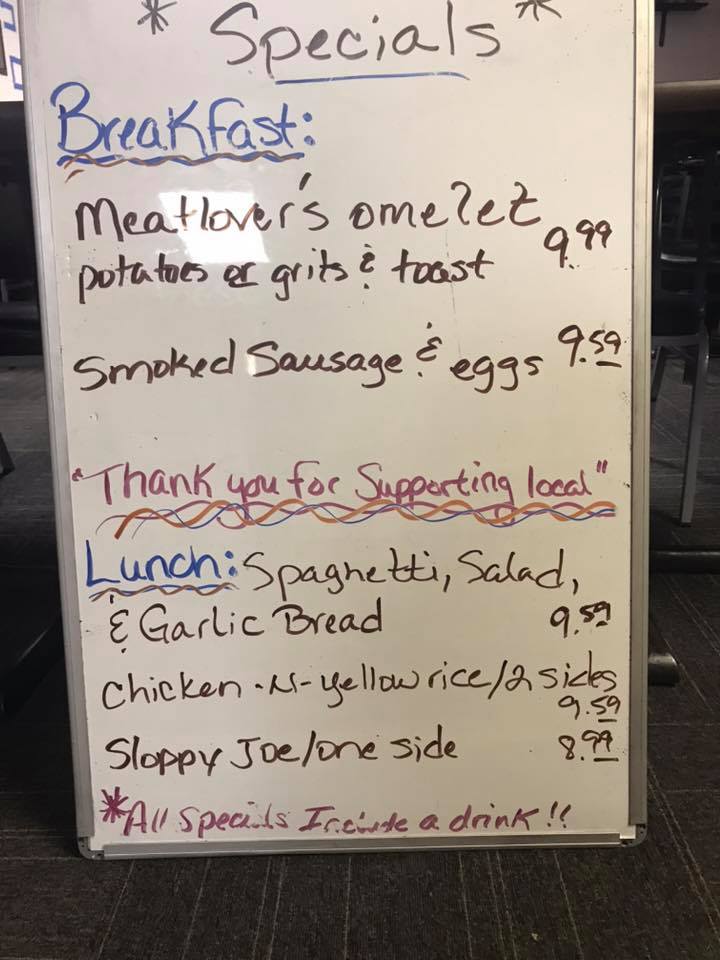 * Specials *
Breakfast:
Meatlover's omelet
potatoes or grits & toast 9.99
Smoked Sausage & eggs 9.59
"Thank you for Supporting local"
Lunch: Spaghetti, Salad,
& Garlic Bread 9.59
Chicken-N-yellow rice/2 sides
9.59
Sloppy Joe/one side 8.99
*All Specials Include a drink!!